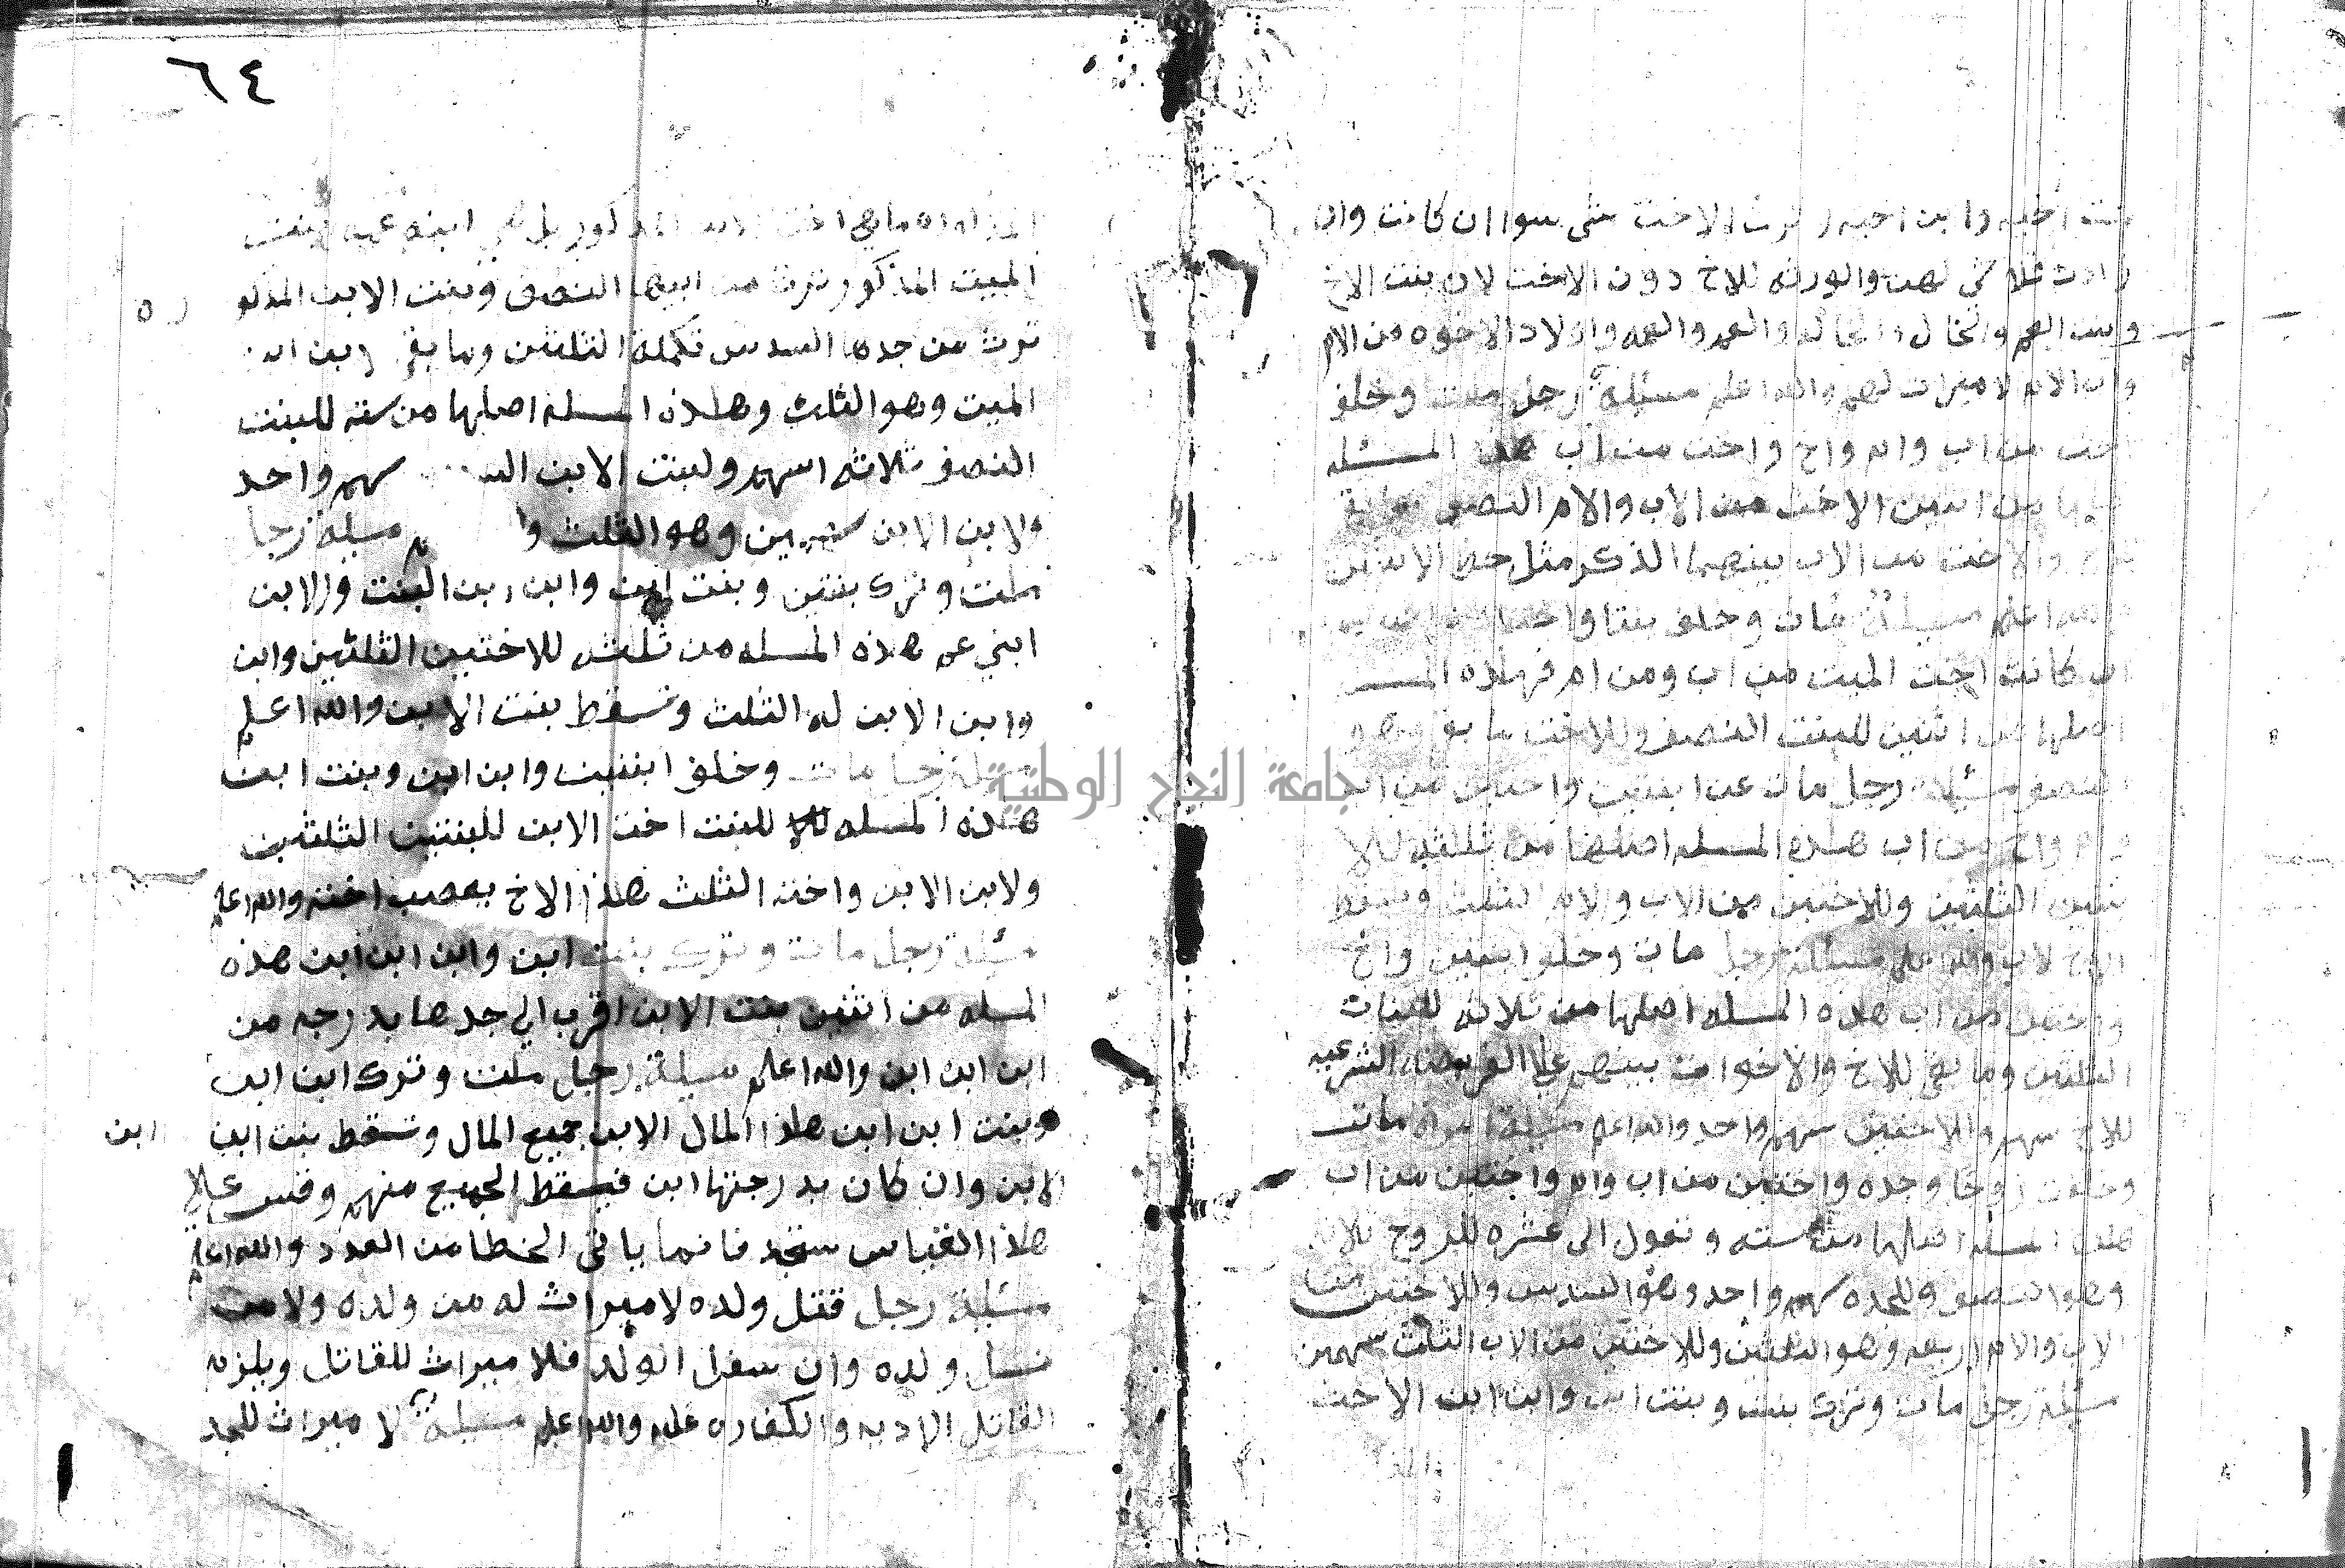 بنت اخيه وابن اخيه لا ترث الاخت شي سوا ان كانت وان
زادت فلا شي لهن والورثه للاخ دون الاخت لان بنت الاخ
وبنت العم والخال والخاله والعم والعمه واولاد الاخوه من الام
لا ميراث لهم والله اعلم مسئلة رجل مات وخلف
اخت من اب وام واخ واخت من اب هذه المسئله
من اثنين الاخت من الاب والام النصف
والاخت من الاب بينهما الذكر مثل حظ الانثيين
والله اعلم مسئلة مات وخلف بنتا واختا
ان كانت اخت الميت من اب ومن ام فهذه
اصلها من اثنين للبنت النصف وللاخت ما بقي وهو
النصف مسئلة رجل مات عن ابنتين واختين من اب
وام واخ من اب هذه المسله اصلها من ثلثه للا
بنتين الثلثين وللاختين من الاب والام الثلث وسقط
الاخ لاب والله اعلم مسئلة رجل مات وخلف ابنتين واخ
واختين من اب هذه المسله اصلها من ثلاثه للبنات
الثلثين وما بقي للاخ والاخوات بينهم علي الفريضه الشرعيه
للاخ سهم وللاختين سهم واحد والله اعلم مسئلة امراه ماتت
وخلفت زوجا وجده واختين من اب وام واختين من اب
هذه المسله اصلها من سته وتعول الى عشره للزوج ثلاثه
وهو النصف وللجده سهم واحد وهو السدس وللاختين من
الاب والام اربعه وهو الثلثين وللاختين من الاب الثلث سهمين
مسئلة رجل مات وترك بنت وبنت ابن وابن ابن الاخت
جامعة النجاح الوطنية
٦٤
المذكور بل هي ابنه عمه بنت
الميت المذكور ترث من ابيها النصف وبنت الابن المذكو
ره
ترث من جدها السدس تكملة الثلثين وما بقي ابن ابن
الميت وهو الثلث وهذه المسله اصلها من سته للبنت
النصف ثلاثه اسهم ولبنت الابن سهم واحد
ولابن الابن سهمين وهو الثلث مسئلة رجل
مات وترك بنتين وبنت ابن وابن ابن البنت والابن
ابني عم هذه المسله من ثلثه للاختين الثلثين وابن
وابن الابن له الثلث وتسقط بنت الابن والله اعلم
مسئلة رجل مات وخلف ابنتين وابن ابن وبنت ابن
هذه المسله للبنت اخت الابن للبنتين الثلثين
ولابن الابن واخته الثلث هذا الاخ يعصب اخته والله اعلم
مسئلة رجل مات وترك بنت ابن وابن ابن ابن هذه
المسله من اثنين بنت الابن اقرب الي جدها بدرجه من
ابن ابن ابن والله اعلم مسئلة رجل مات وترك ابن ابن
وبنت ابن ابن هذا المال الابن جميع المال وتسقط بنت ابن
ابن
الابن وان كان بدرجتها ابن فيسقط الجميع منهم وقس علي
هذا القياس ستجد فانما ياتي الخطا من العدد والله اعلم
مسئلة رجل قتل ولده لا ميراث له من ولده ولا من
نسل ولده وان سفل الولد فلا ميراث للقاتل ويلزم
القاتل الاديه والكفاره عليه والله اعلم مسئلة لا ميراث للجد